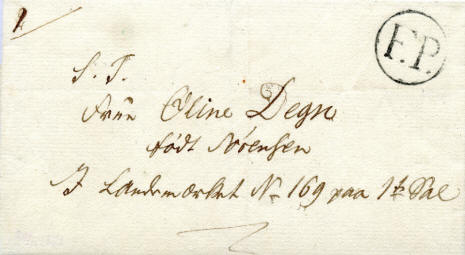 F.P.
S. T.
Frue Oline Degn
født Sørensen
I Landemærket No 169 paa 1te Sal